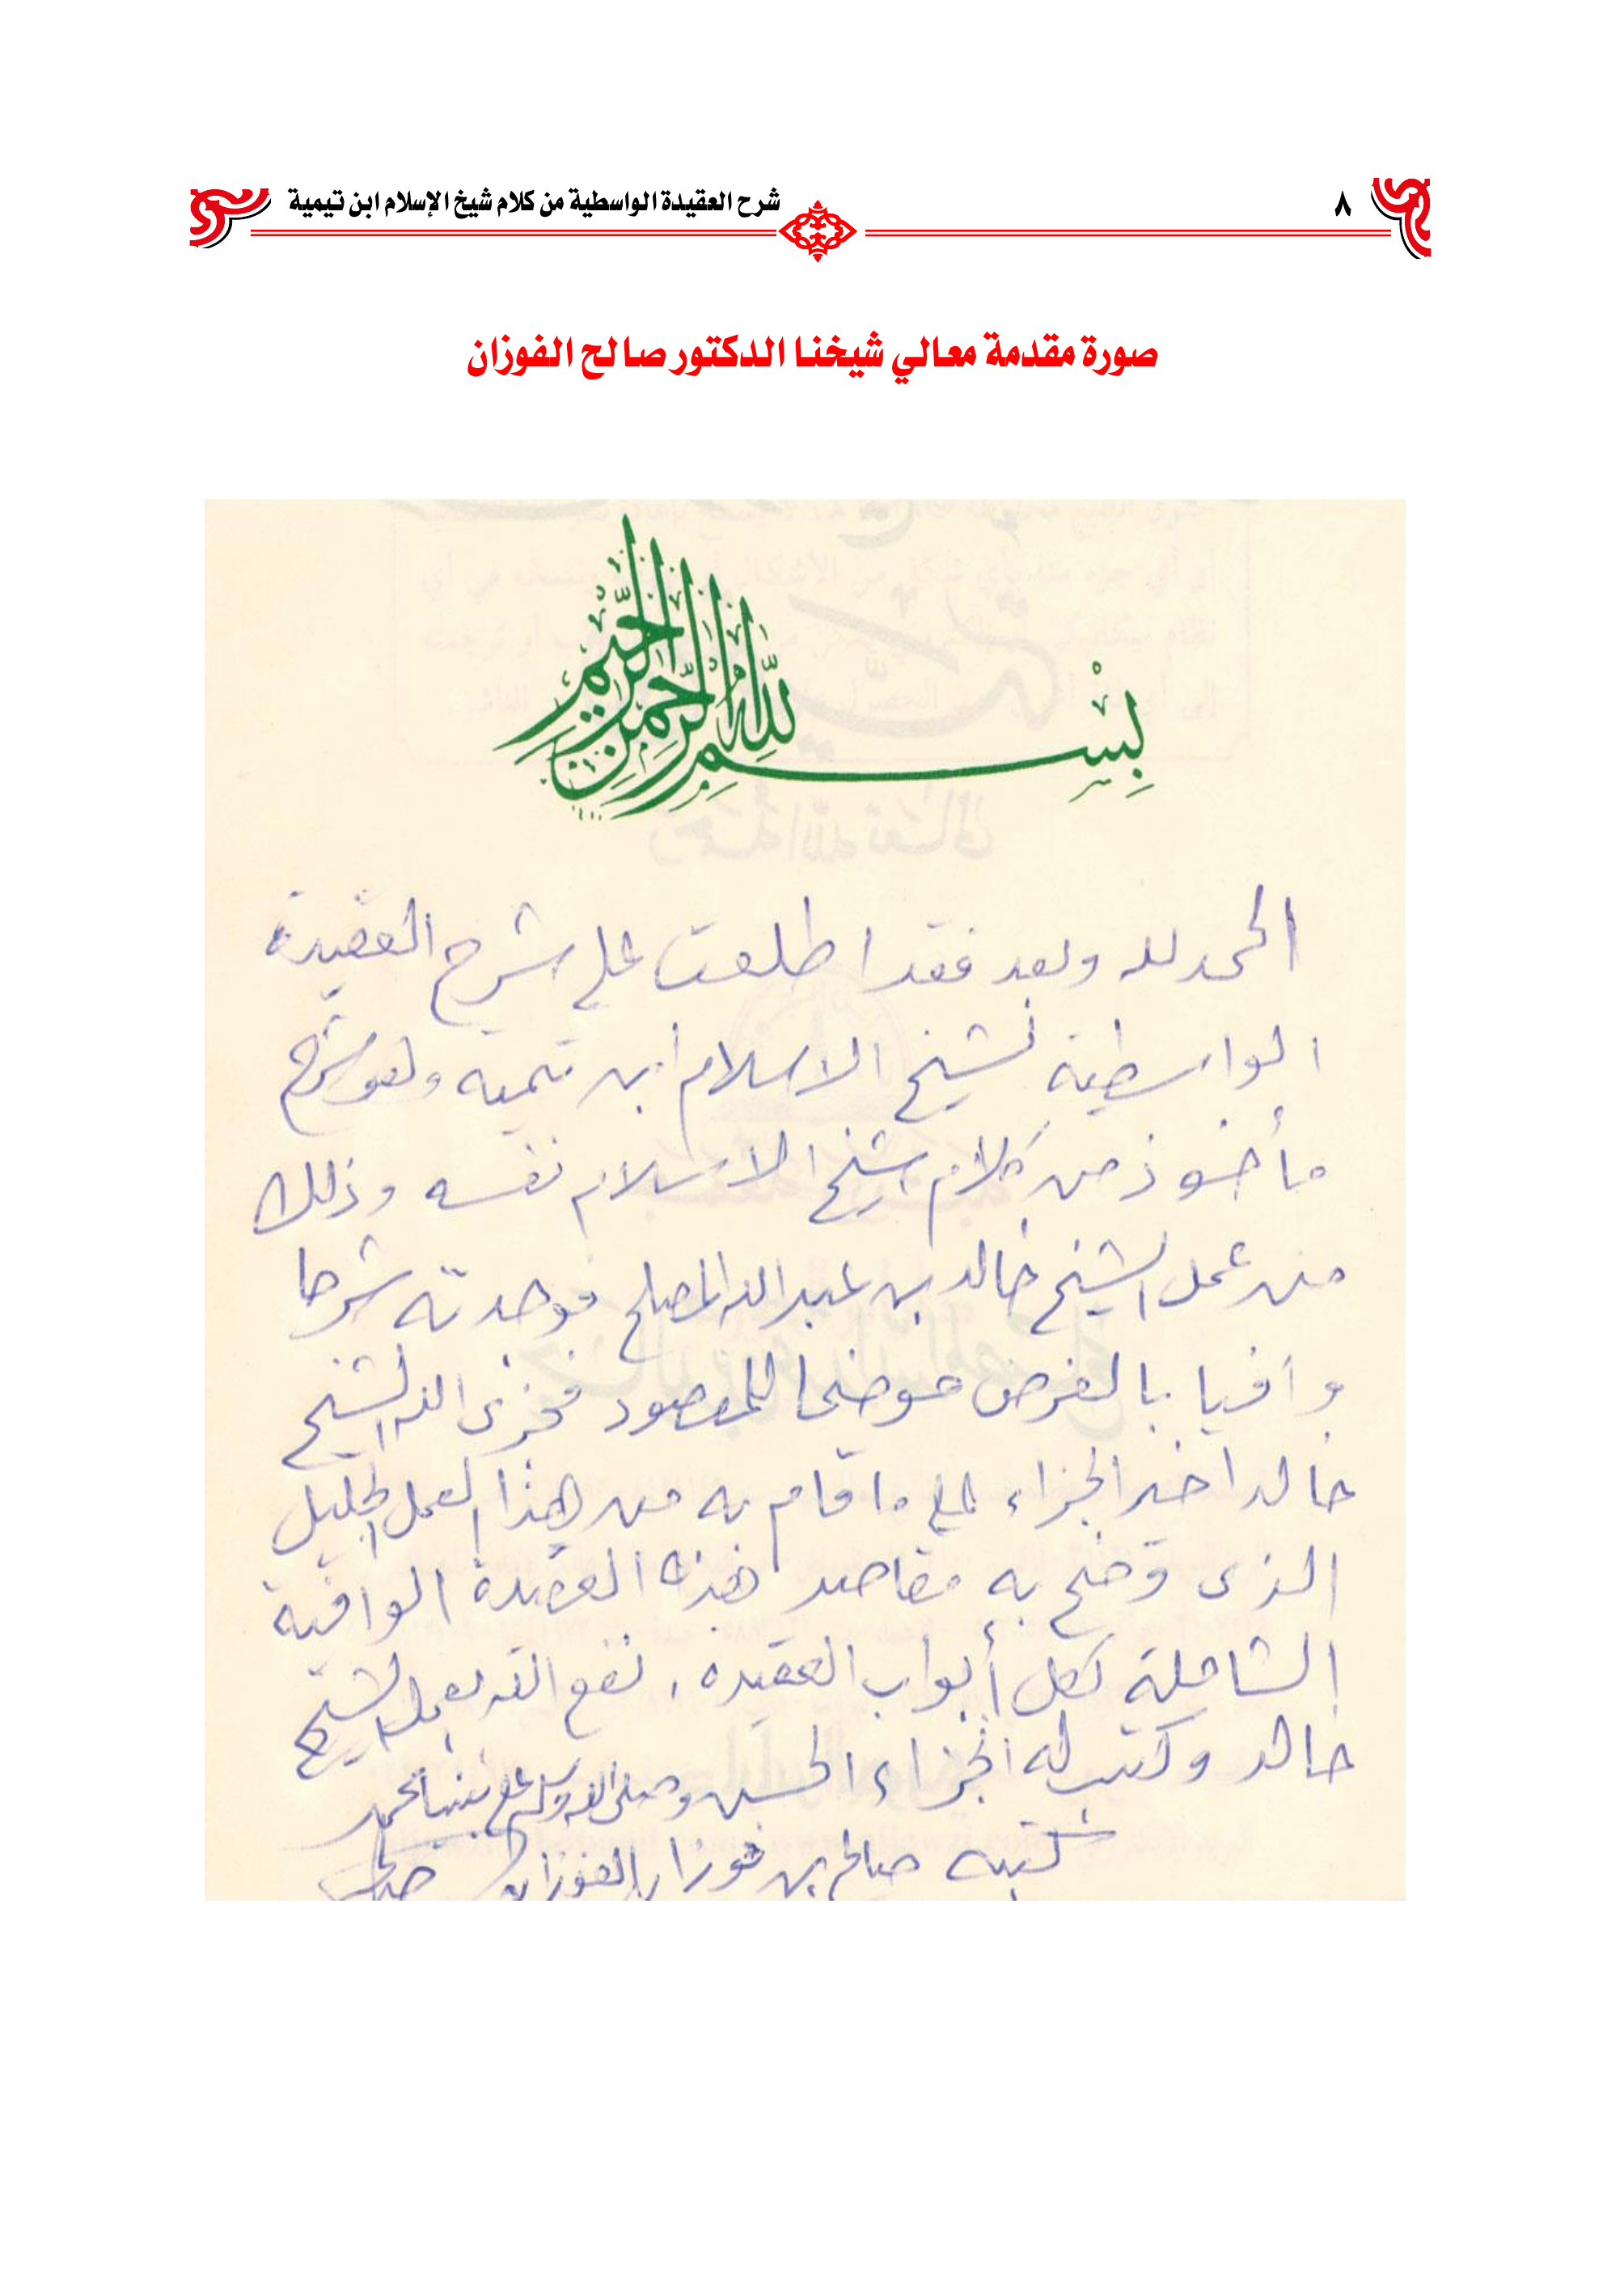 ٨
شرح العقيدة الواسطية من كلام شيخ الإسلام ابن تيمية
صورة مقدمة معالي شيخنا الدكتور صالح الفوزان
بسم الله الرحمن الرحيم
الحمد لله وبعد فقد اطلعت على شرح العقيدة
الواسطية لشيخ الاسلام ابن تيميه وهو شرح
مأخوذ من كلام شيخ الاسلام نفسه وذلك
من عمل الشيخ خالد بن عبد الله المصلح فوجدته شرحا
وافيا بالغرض موضحا للمقصود فجزى الله الشيخ
خالدا خير الجزاء على ما قام به من هذا العمل الجليل
الذى وضح به مقاصد هذه العقيدة الوافية
الشاملة لكل أبواب العقيده. نفع الله بعمل الشيخ
خالد وكتب له الجزاء الحسن وصلى الله وسلم على نبينا محمد
كتبه صالح بن فوزان الفوزان